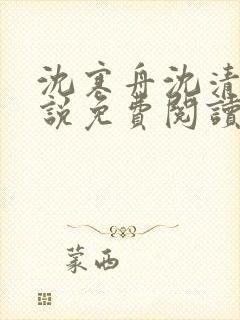 沈寒舟沈清
說免費閱讀
蒙西